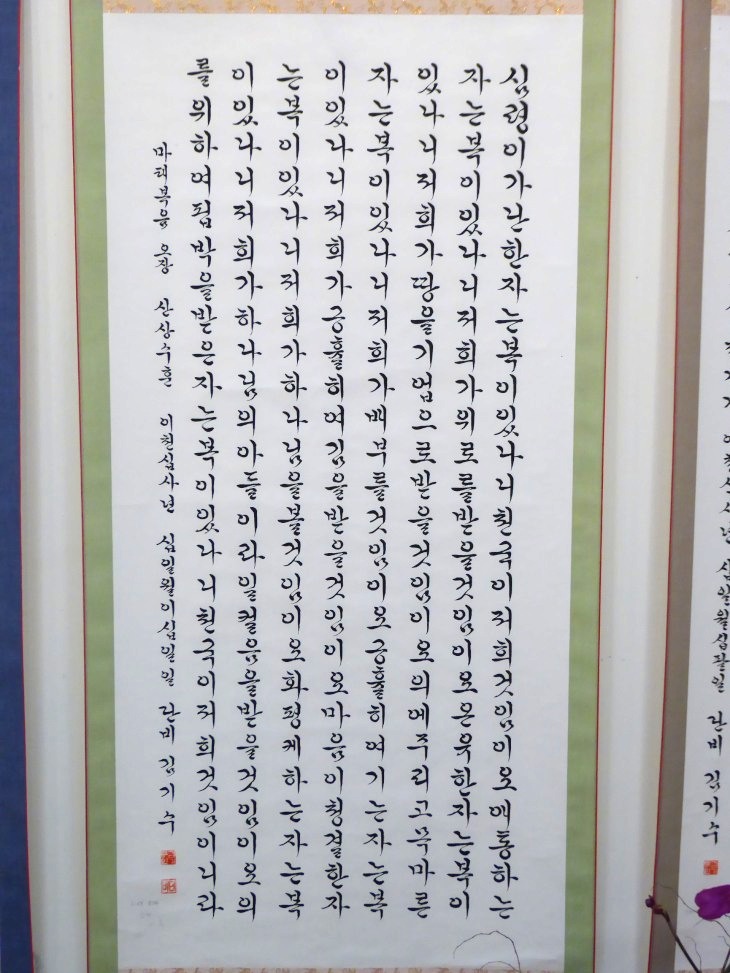 심령이가난한자는복이있나니천국이저희것임이오애통하는
자는복이있나니저희가위로를받을것임이오온유한자는복이
있나니저희가땅을기업으로받을것임이오의에주리고목마른
자는복이있나니저희가배부를것임이오긍휼히여기는자는복
이있나니저희가긍휼히여김을받을것임이오마음이청결한자
는복이있나니저희가하나님을볼것임이오화평케하는자는복
이있나니저희가하나님의아들이라일컬음을받을것임이오의
를위하여핍박을받은자는복이있나니천국이저희것임이니라
마태복음 오장 산상수훈 이천십사년 십일월이십일일 란비 김기수
이천십사년 십일월십팔일 란비 김기수